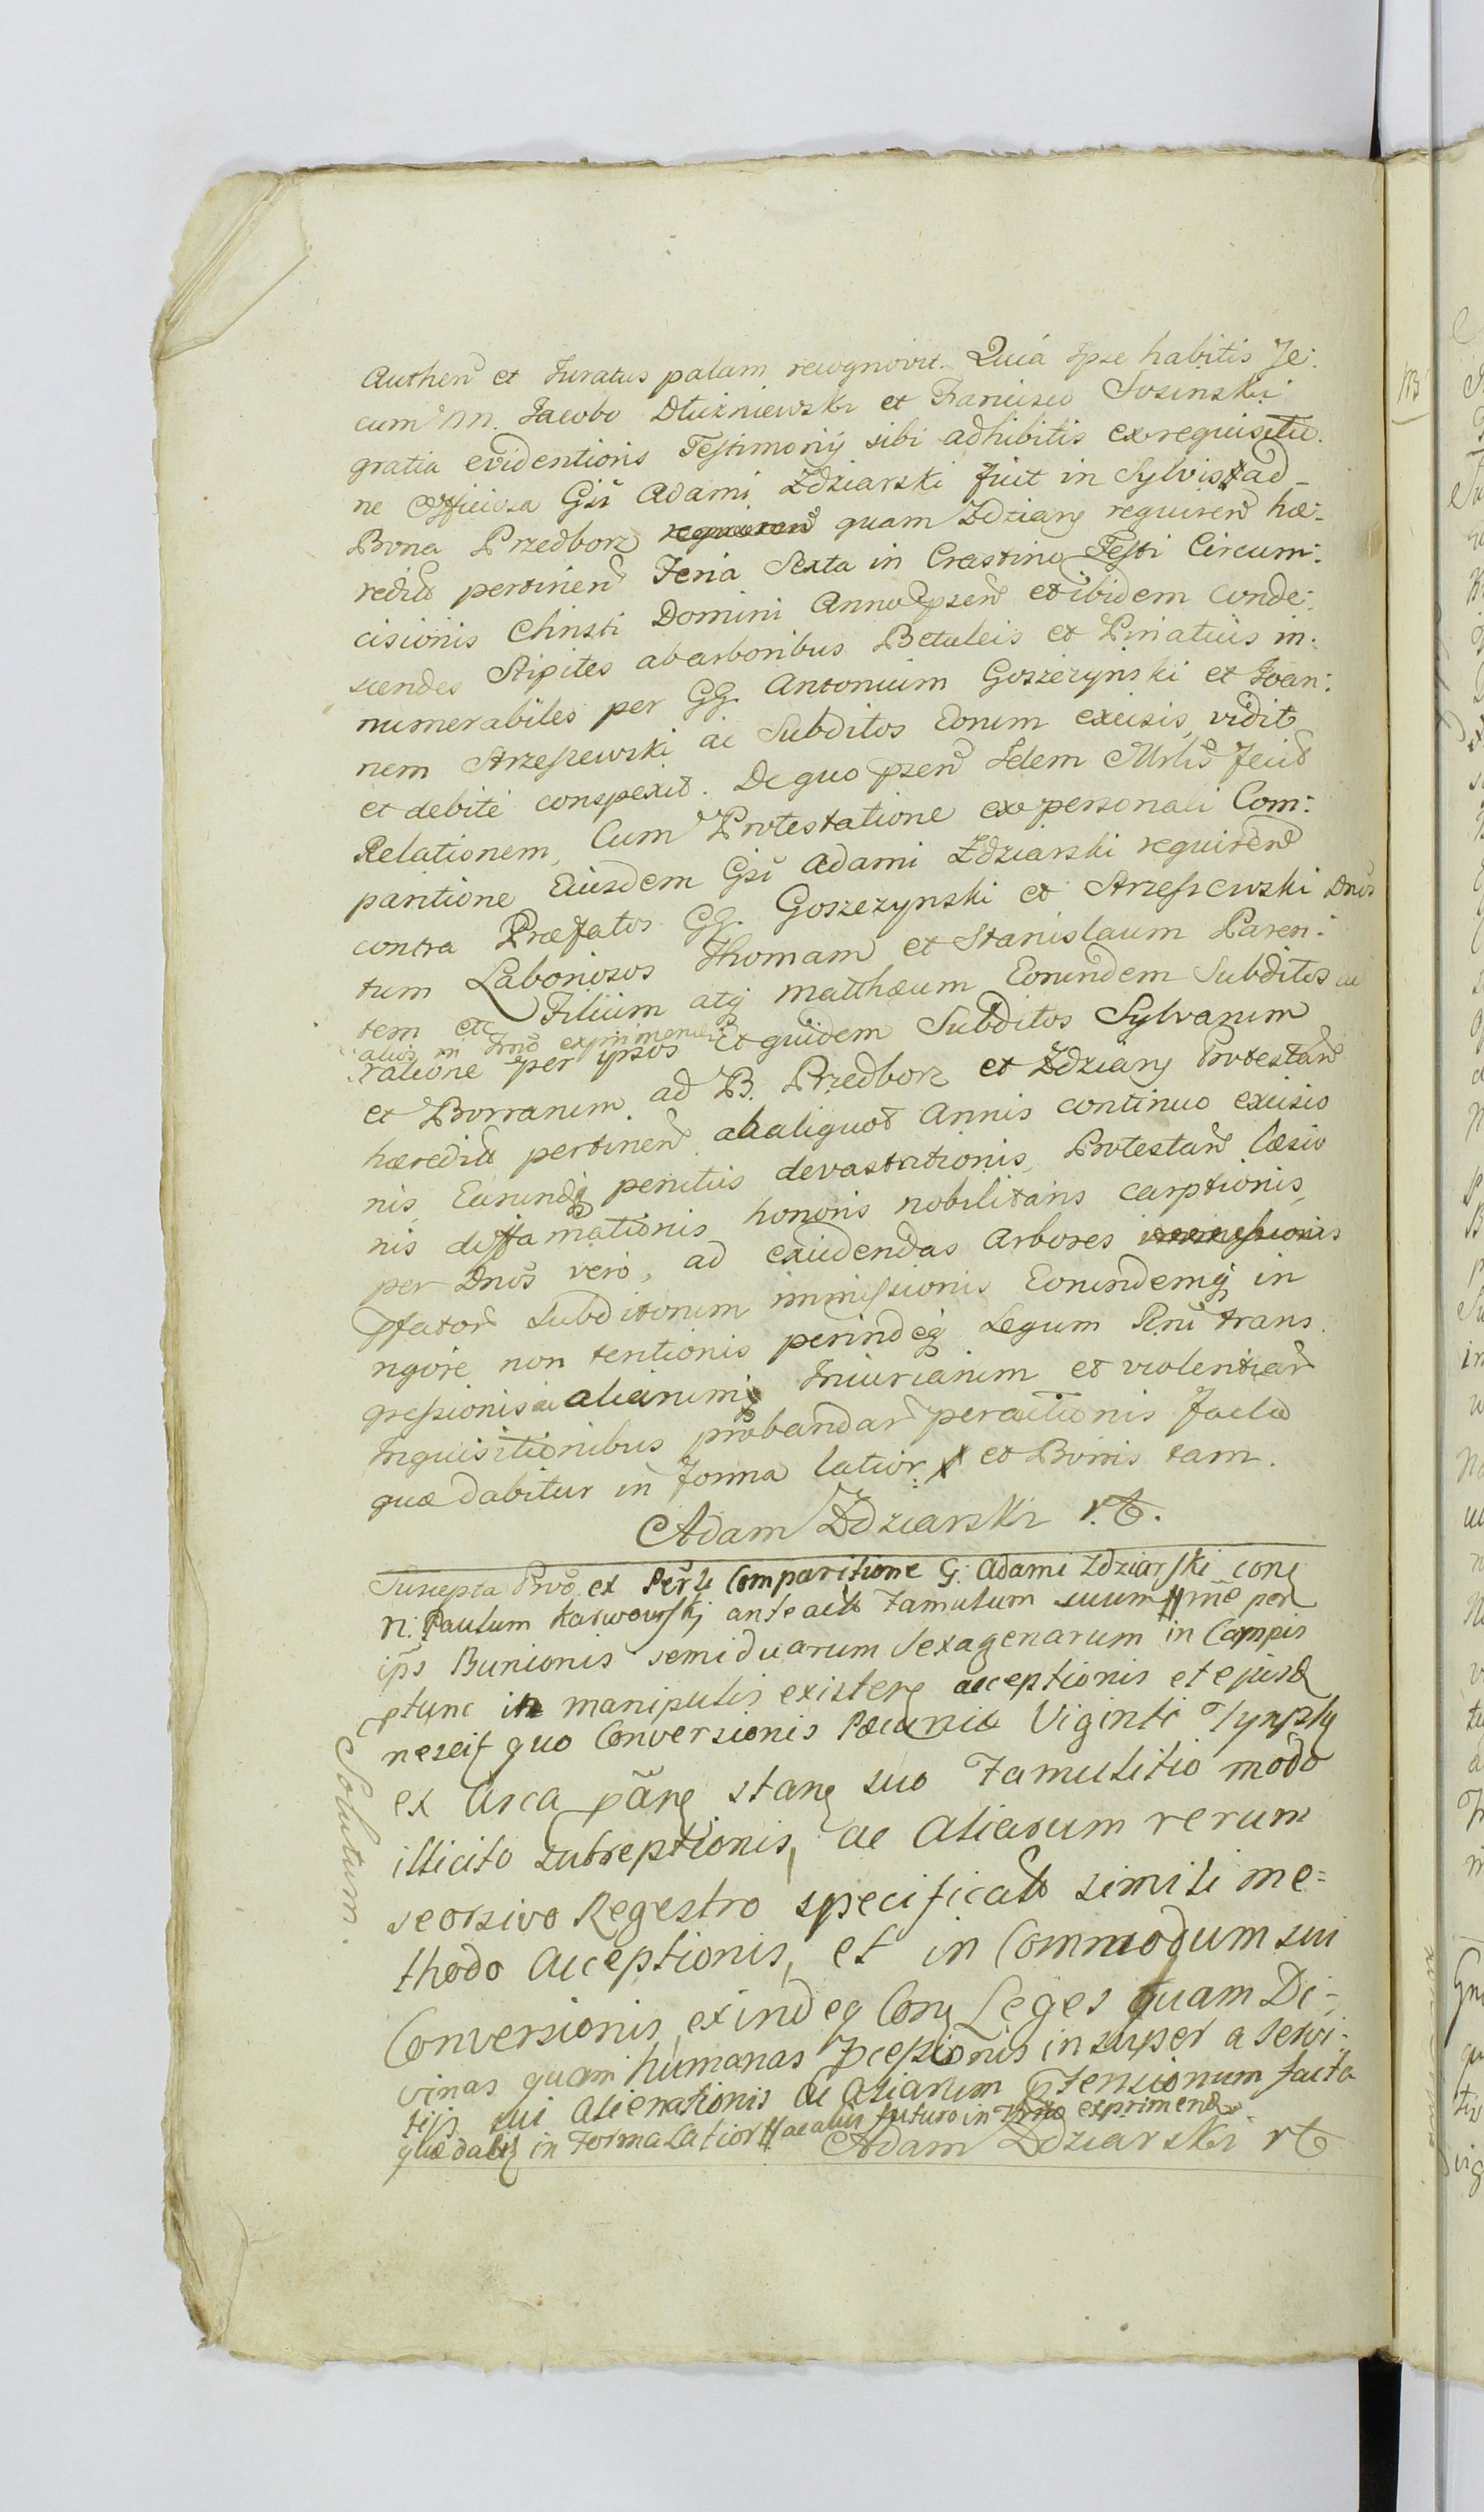 Authen et Juratus palam recognovit. Quia Ipse habitis Se:
cum NN. Jacobo Dłużniewski et Francisco Sosinski
gratia evidentioris Testimonij sibi adhibitis ex requisitio:
ne Officiosa Gsi Adami Zdziarski fuit in Sylvis ad
Bona Przedborz quam Zdziary requiren hæ:
redit pertinen Feria Sexta in Crastino Festi Circum:
cisionis Christi Domini Anno psen et ibidem conde:
scendes Stipites ab arboribus Betuleis et Piniatiis in:
numerabiles per GG. Antonium Goszczynski et Joan:
nem Strzeszewski ac Subditos Eorum excisis, vidit
et debite conspexit. De quo psen Idem Mrlis fecit
Relationem, Cum Protestatione ex personali Com:
paritione Eiusdem Gsi Adami Zdziarski requiren
contra Præfatos GG. Goszczynski et Strzeszewski Dnos
tum Laboriosos Thomam et Stanislaum Paren:
tem et Filium atq Matthæum Eorundem Subditos ac
alios in Trno exprimen
ratione per ipsos et quidem Subditos Sylvarum
et Borrarum ad B. Przedborz et Zdziary Protestan
hæredit pertinen ab aliquot Annis continuo excisio
nis, Earundq penitus devastationis, Protestan læsio
nis diffamationis honoris nobilitaris carptionis,
per Dnos vero, ad exiudendas Arbores
pfator Subditorum immissionis Eorundemq in
rigore non tentionis perindeq Legum Rni trans
gressionis ac aliarumq Iniuriarum et violentiar
Inquisitionibus probandar peractionis facta
quæ dabitur in forma latior et Bonis tam.
Adam Zdziarski r.t.
Suscepta Prto ex Perli Comparitione G: Adami Zdziarski con
N: Paulum Karwowski anteact Famulum suum rne per
ips Bunionis semiduarum sexagenarum in Campis
ptunc in manipulis existen acceptionis et ejusd
nescit quo Conversionis Pecuniæ Viginti Tynph
ex Arca stan suo Famulitio modo
illicito subreptionis, ac aliarum rerum
seorsivo Regestro specificat simili me=
thodo acceptionis, et in Commodum sui
Conversionis exindeq Con Leges quam Di:
vinas quam humanas insuper a servi:
tijs sui alienationis ac aliarum ptensionum facta
quæ dabit in Forma Latior ac aliis futuro in Trno exprimend
Adam Zdziarski rt
Solutum.